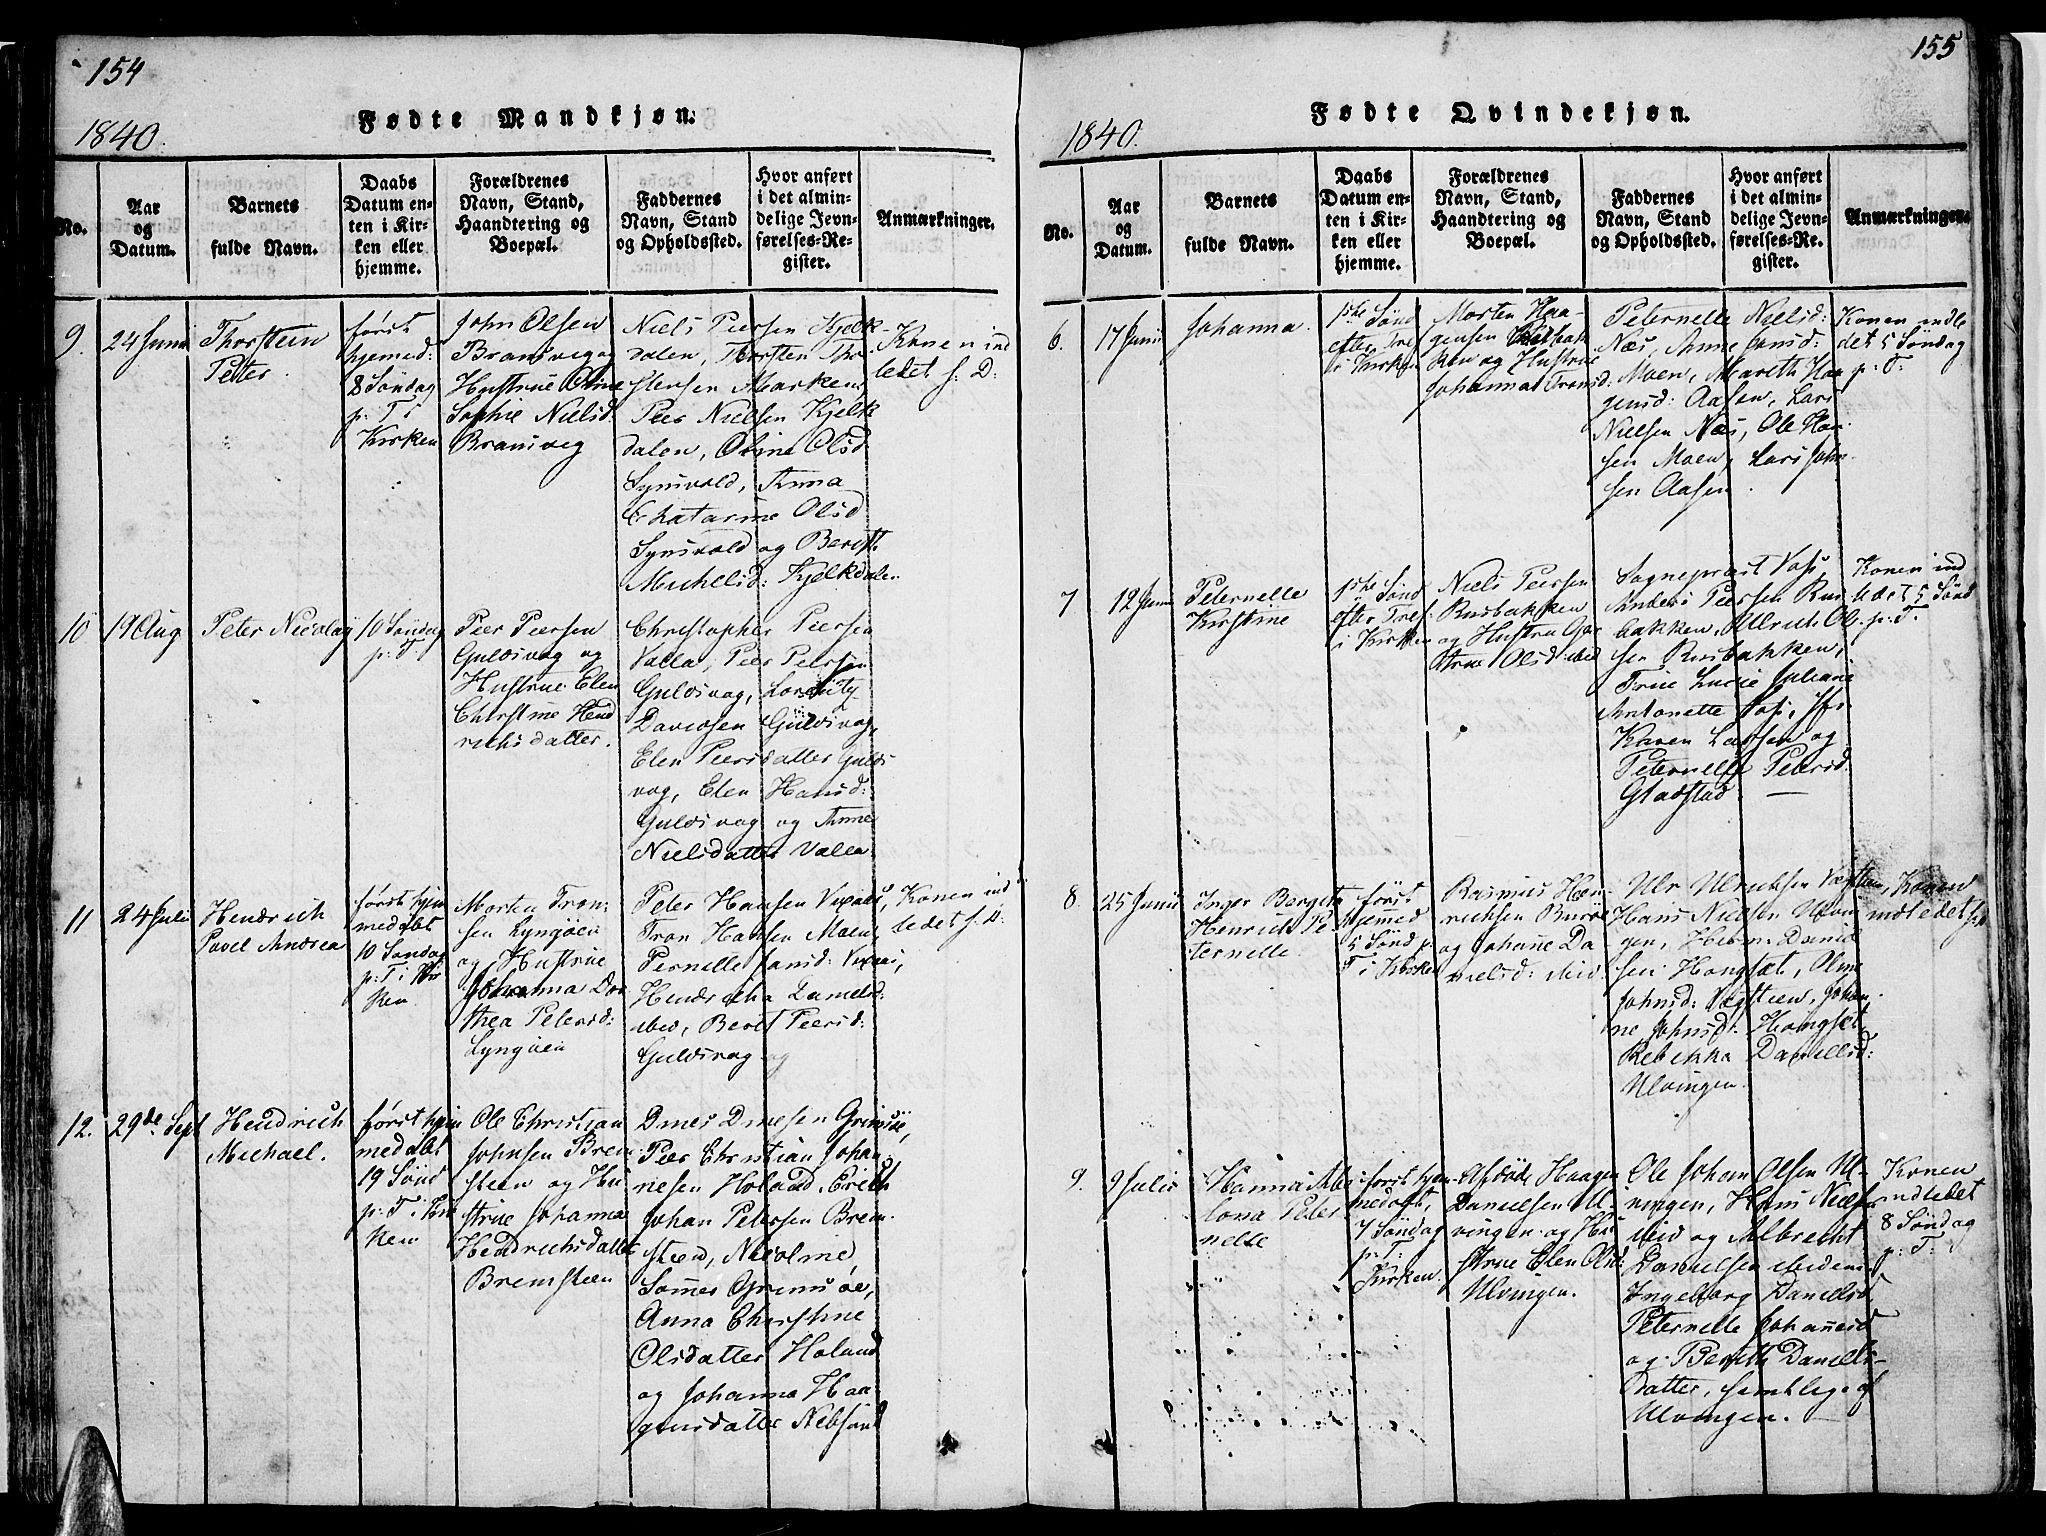 154
Fødte Mandkjøn.
1840.
No.
Aar
og
Datum.
Barnets
fulde Navn.
Daabs
Datum en-
ten i Kir-
ken eller
hjemme.
Forældrenes
Navn, Stand,
Haandtering og
Boepæl.
Faddernes
Navn, Stand
og Opholdssted.
Hvor anført
i det almin-
delige Jevn-
førelses-Re-
gister.
Anmærkninger.
9.
24 Juni
Thorsteen
Peter.
først
hjemed:
8 Søndag
p: T i
Kirken
John Olsen
Bransvig og
Hustrue Oline
Sophie Nielsd
Bransveg
Niels Peersen Kjelk-
dalen, Thorsten Tho-
stensen Marken,
Peer Nielsen Kjelk
dalen, Oline Olsd
Synsvold, Anna
Chatarine Olsd
Synsvold og Berith
Michelsd: Kjelkdalen
Konen ind
ledet s: D:
10
19 Aug
Peter Nicolay
10 Søndag
p: T.
Peer Peersen
Guldsvog og
Hustrue Elen
Christine Hend
richsdatter.
Christopher Peersen
Valla, Peer Peersen
Guldsvog,
Davidsen Guldsvog,
Elen Peersdatter Gulds-
vog, Elen Hansd:
Guldsvog og Anne
Nielsdatter Valla
11
24 Juli
Hendrich
Povel Andrea
først hjem
medøbt
10 Søndag
p: T i Kir
ken
Morten Tron
sen Lyngøen
og Hustrue
Johanna Do
thea Petersd:
Lyngøen
Peter Hansen
Tron Hansen Moen,
Pernelle Jansd:
Hendricha Danielsd:
ibid, Beret Peersd:
Guldsvog og
Konen ind
ledet s. D.
12.
29de Sept
Hendrich
Michael.
først hjem
medøbt
19 Sønd
p: T i Kir
ken
Ole Christian
Johnsen Brem
steen og Hu
strue Johanna
Hendrichsdatter
Bremsteen
Dines Dinesen Grimsøe,
Peer Christian Johan-
nesen Holand, Erich
Johan Petersen Brem
steen, Nicoline
Grimsøe,
Anna Christine
Olsdatter Holand
og Johanna Haa
gensdatter
155
Fødte Qvindekjøn.
1840.
No.
Aar
og
Datum.
Barnets
fulde Navn.
Daabs
Datum en-
ten i Kir-
ken eller
hjemme.
Forældrenes
Navn, Stand,
Haandtering og
Boepæl.
Faddernes
Navn, Stand
og Opholdssted.
Hvor anført
i det almin-
delige Jevn-
førelses-Re-
gister.
Anmærkninger.
6.
17 Junii
Johanna.
1ste Sønd
efter Tref
i Kirken
Morten Haa-
gensen
og Hustrue
Johanna Tronsd.
Peternelle Nielsd:
Næs, Anne Jansd:
Moen, Mareth Haa
gensd: Aasen, Lars
Nielsen Næs, Ole Han-
sen Moen, Lars John-
sen Aasen.
Konen indle
det 5 Søndag
p: T:
7
12 Junii
Peternelle
Kirstine
1ste Sønd
efter Tref:
i Kirken
Niels Peersen
Rusbakken
og Hustru
Olsd: ibid
Sognepræst Vos:
Anders Peersen Rus
bakken, Ulrich Ol-
sen Rusbakken,
Frue Lucie Juliane
Antonette Vos, Jfr.
Karen Lassen og
Peternelle Petersd:
Gladstad. —
Konen ind
ledet 5 Sønd
p: T.
8.
25 Junii
Inger Bergita
Henrich Pe
ternelle.
først
hjemmed
5 Sønd p:
T i Kirken
Rasmus Hen-
richsen
og Johanne Da
nielsd: ibid
Ulr Ulrichsen
Hans Nielsen Ulvin
gen, Daniel
sen Hongset, Oline
Johnsd: Johan
ne Johnsd: Hongset,
Rebekka Danielsd:
Ulvingen.
Konen
indledet
9.
9 Julii
Hanna
Peter
nelle
først hjem
medøbt,
7 Søndag
p: T:
Kirken.
Haagen
Danielsen Ul-
vingen og Hu
strue Elen Olsd:
Ulvingen.
Ole Johan Olsen Ul-
vingen, Hans Nielsen
ibid og Albrecht
Danielsen ibidem
Ingeborg Danielsd,
Peternelle Johannesd
og Berith Daniels-
datter, samtlige af
Ulvingen. —
Konen
indledet
8 Søndag
p: T: